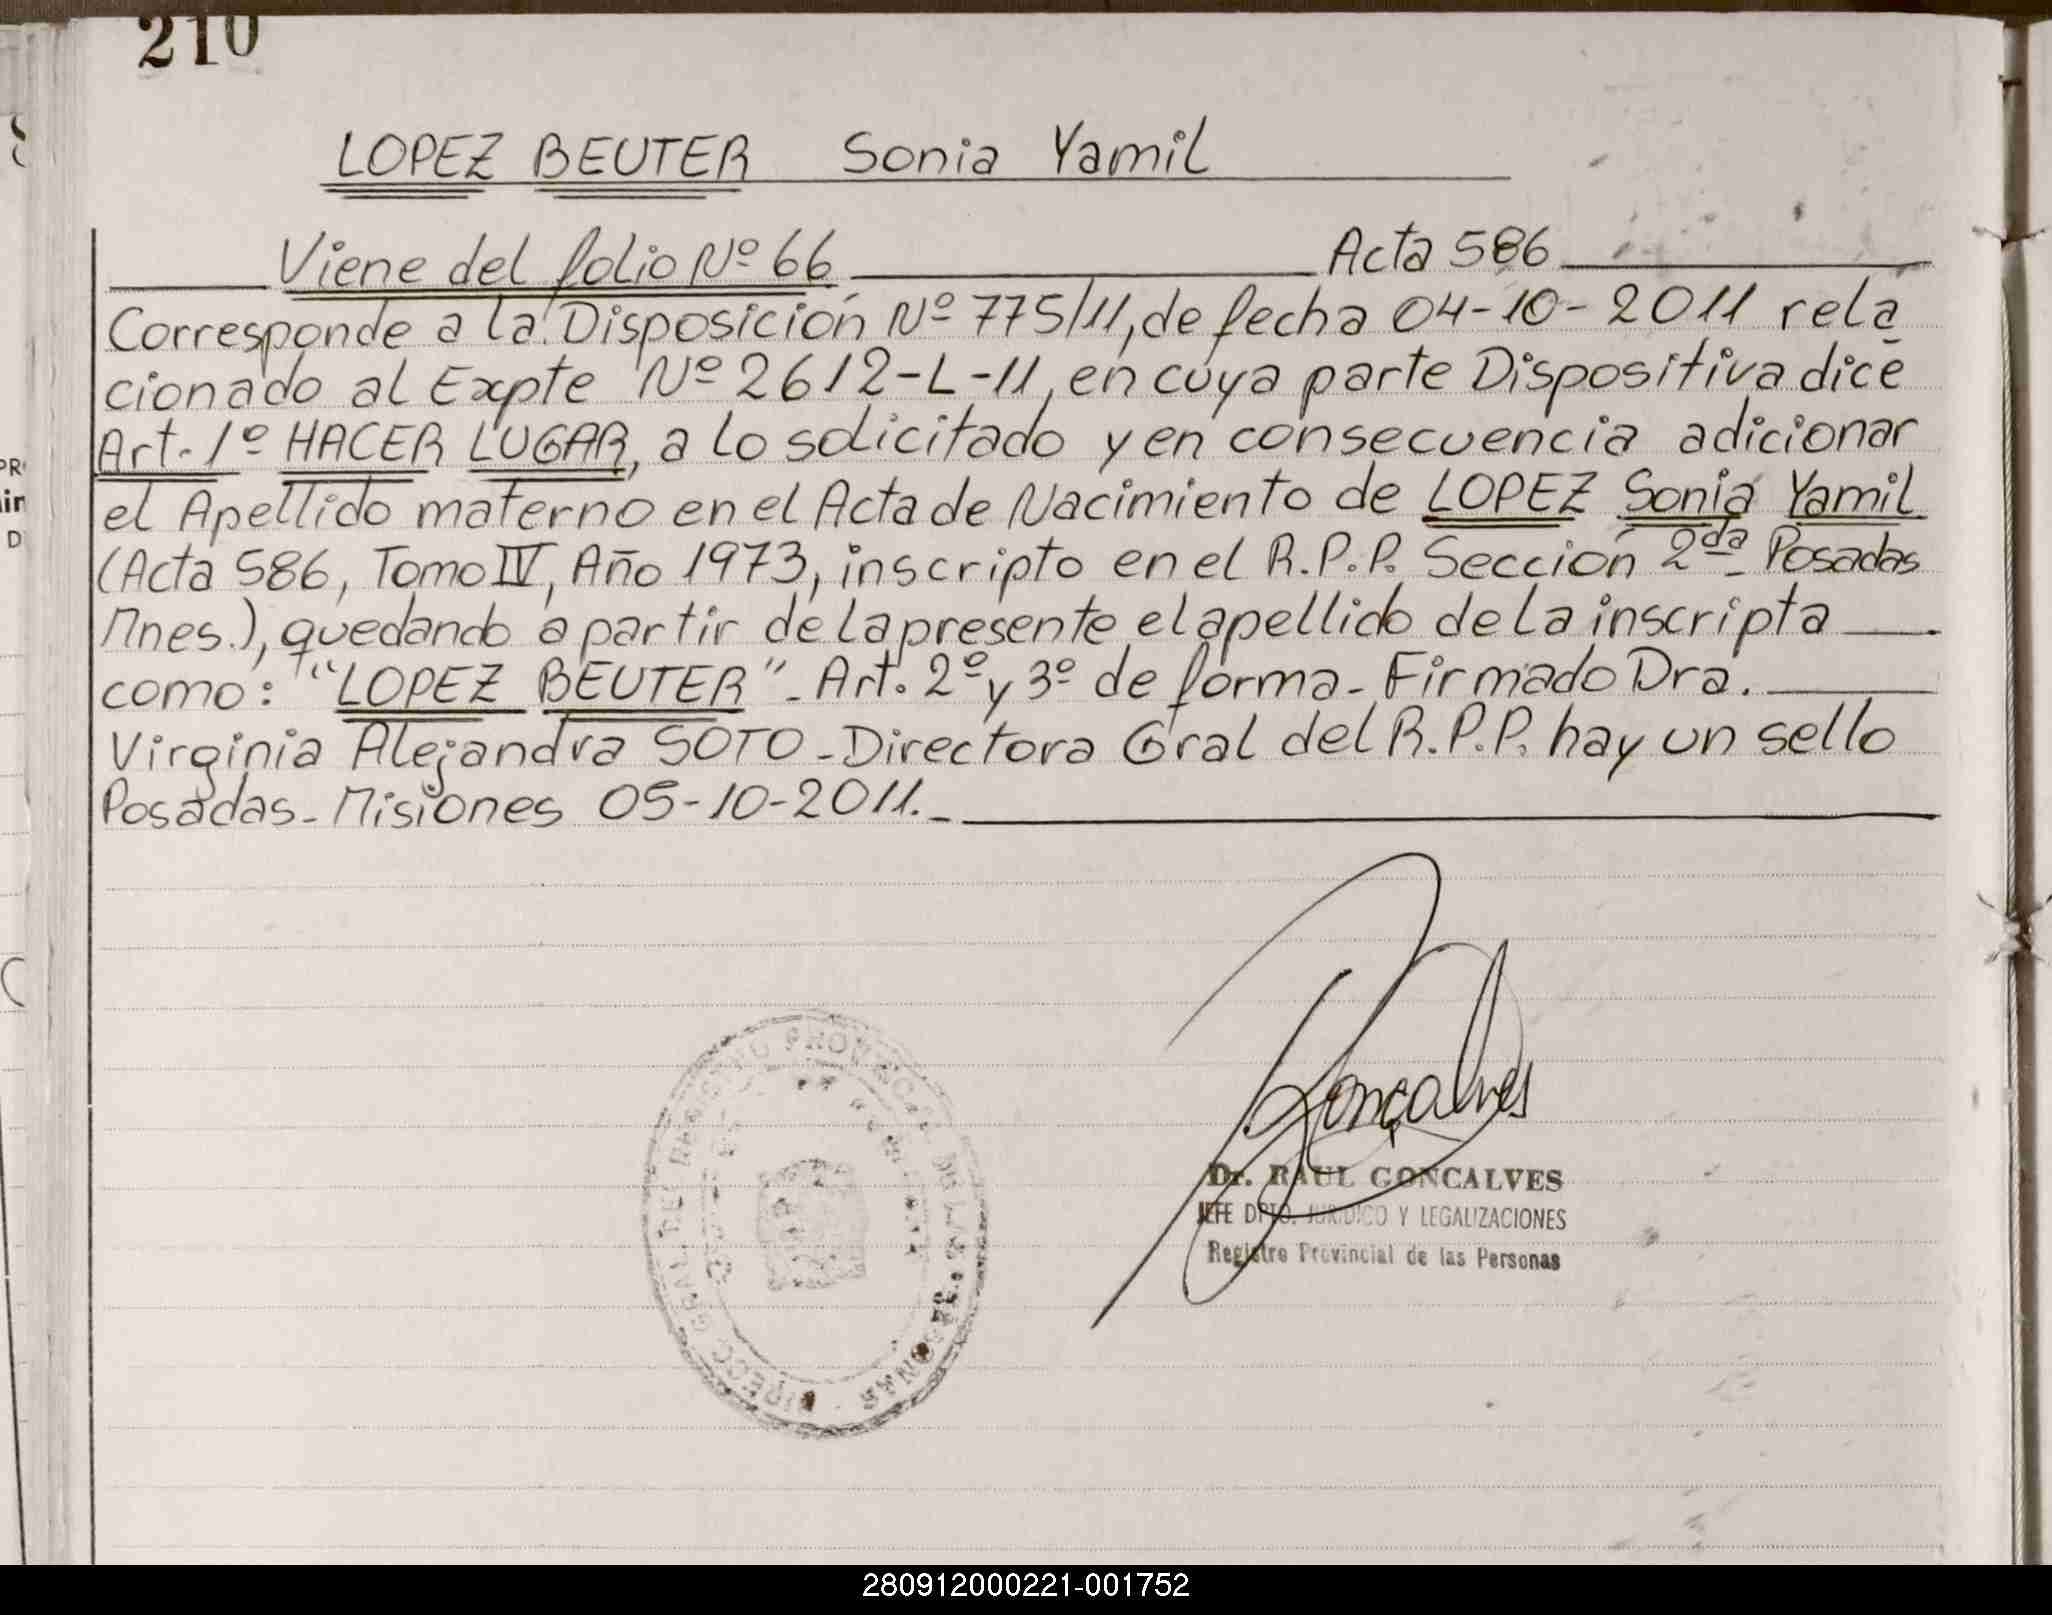 210
LOPEZ BEUTER Sonia Yamil
Viene del folio Nº 66 Acta 586
Corresponde a la Disposición Nº 775/11, de fecha 04-10-2011 rela
cionado al Expte Nº 2612-L-11, en cuya parte Dispositiva dice
Art. 1º HACER LUGAR, a lo solicitado y en consecuencia adicionar
el Apellido materno en el Acta de Nacimiento de LOPEZ Sonia Yamil
(Acta 586, Tomo IV, Año 1973, inscripto en el R.P.P. Sección 2da Posadas
Mnes.), quedando a partir de la presente el apellido de la inscripta
como: "LOPEZ BEUTER". Art. 2º y 3º de forma - Firmado Dra.
Virginia Alejandra SOTO - Directora Gral del R.P.P. hay un sello
Posadas - Misiones 05-10-2011.-
Goncalves
Dr. RAUL GONCALVES
JEFE DPTO. JURIDICO Y LEGALIZACIONES
Registro Provincial de las Personas
DIRECC GRAL DEL REGISTRO PROVINCIAL DE LAS PERSONAS
PR
D
280912000221-001752